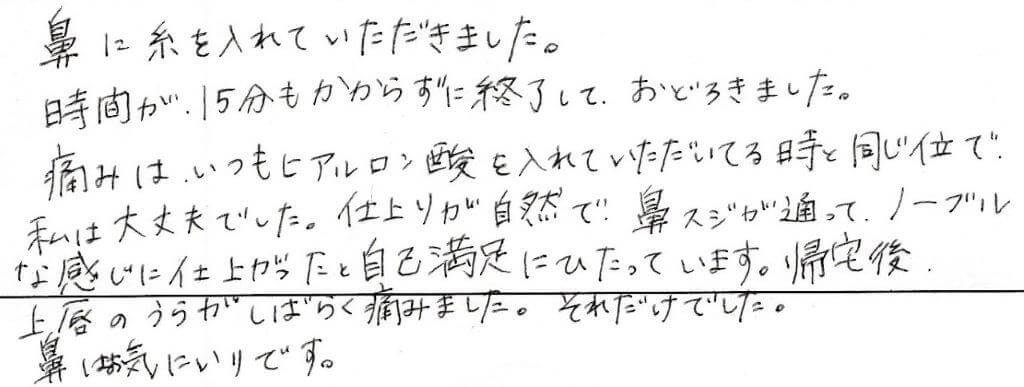 鼻に糸を入れていただきました。
時間が、15分もかからずに終了して、おどろきました。
痛みは、いつもヒアルロン酸を入れていただいてる時と同じ位で、
私は大丈夫でした。仕上りが自然で、鼻スジが通って、ノーブル
な感じに仕上がったと自己満足にひたっています。帰宅後、
上唇のうらがしばらく痛みました。それだけでした。
鼻はお気にいりです。